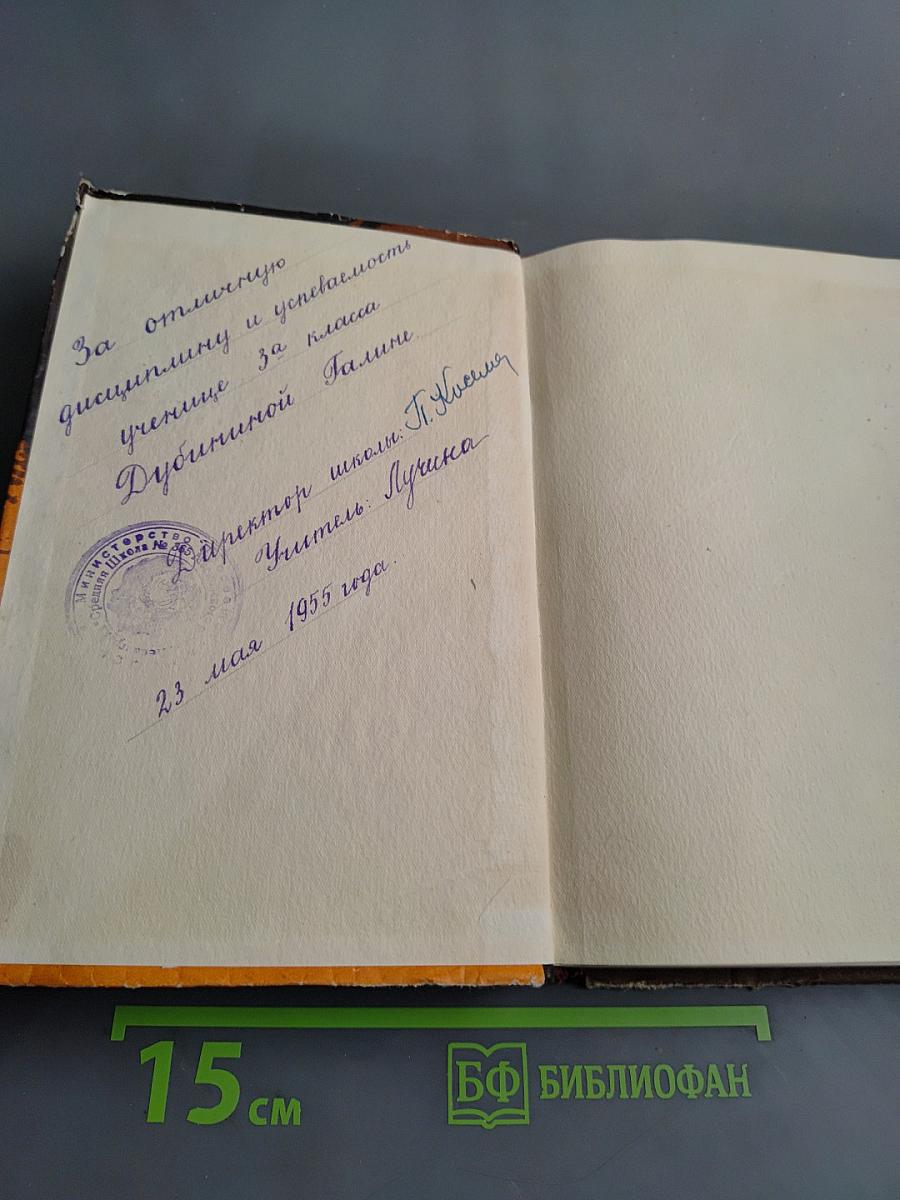 За отличную
дисциплину и успеваемость
ученице 3а класса
Дубининой Галине.
Директор школы: П.
Учитель: Лучина
23 мая 1955 года.
Министерство
Средняя Школа №
15 см
БФ БИБЛИОФАН